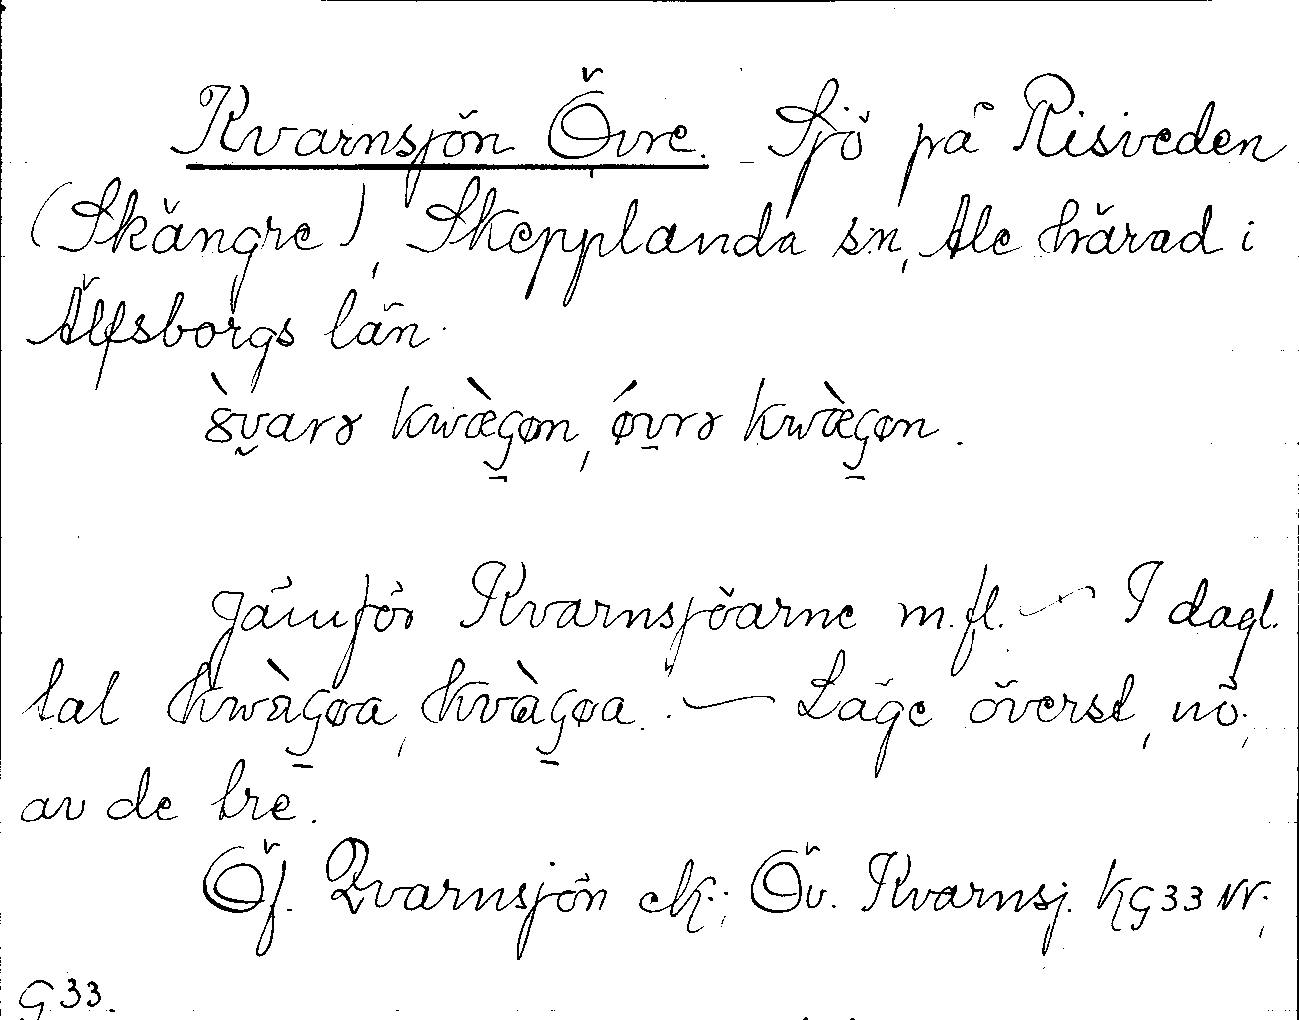 Kvarnsjön Övre. Sjö på Risveden
(Skångre), Skepplanda sn, Ale härad i
Älfsborgs län.
kwæ̀gøn, kwæ̀gøn.
Jämför Kvarnsjöarne m.fl. — I dagl.
tal kwàgøa, kvàgøa. — Läge överst, nö.,
av de tre.
Öf. Qvarnsjön ; Öv. Kvarnsj. KG33 N.;
G 33.